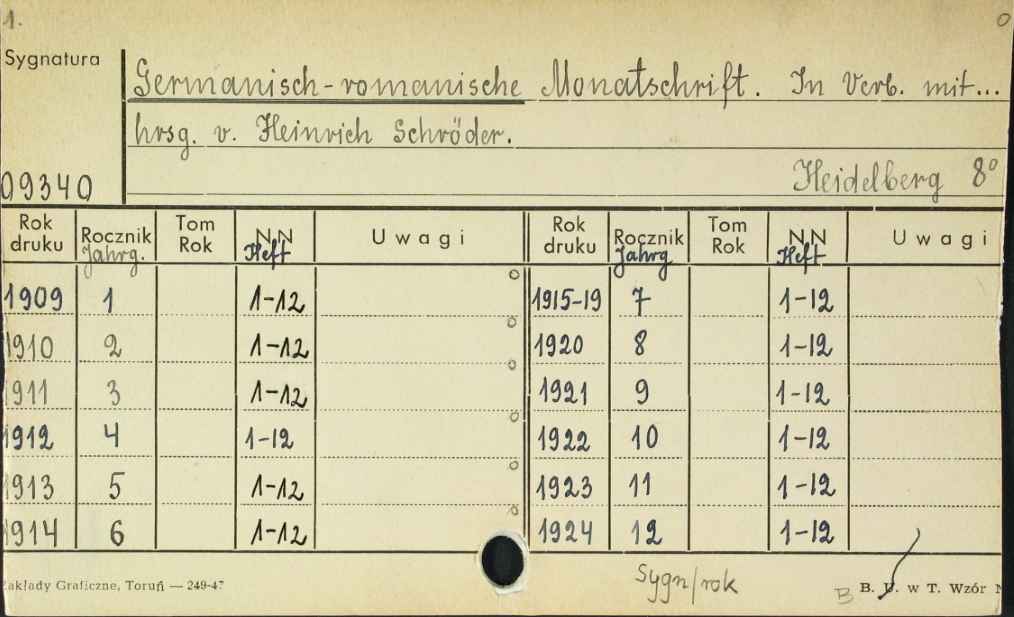 1.
Sygnatura
Germanisch-romanische Monatschrift. In Verb. mit...
hrsg. v. Heinrich Schröder.
09340
Heidelberg 8°
Rok druku Rocznik Jahrg. Tom Rok NN Heft Uwagi Rok druku Rocznik Jahrg Tom Rok NN Heft Uwagi
1909 1 1-12 1915-19 7 1-12
1910 2 1-12 1920 8 1-12
1911 3 1-12 1921 9 1-12
1912 4 1-12 1922 10 1-12
1913 5 1-12 1923 11 1-12
1914 6 1-12 1924 12 1-12
Zakłady Graficzne, Toruń — 249-47 Sygn/rok B B. U. w T. Wzór N